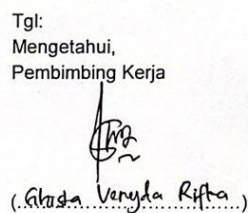 Tgl:
Mengetahui,
Pembimbing Kerja
(Ghosta Venyda Riftra)